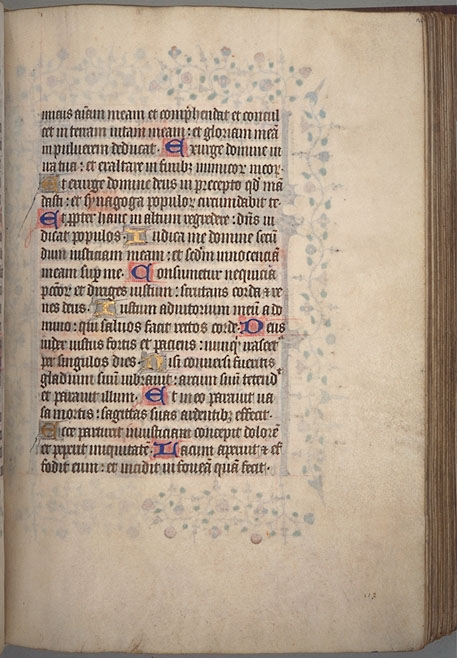 micus aĩam meam et comp̃hendat et concul
cet in terram uitam meam : et gloriam meã
in puluerem deducat. Exurge domine in
ira tua : et exaltare in finibꝫ inimicoꝝ meoꝝ.
Et exurge domine deus in precepto qđ mã
dasti : et synagoga populoꝝ circumdabit te.
Et ꝓpter hanc in altum regredere : dñs iu
dicat populos. Iudica me domine secũ
dum iusticiam meam : et scđm innocenciã
meam suꝑ me. Consumetur nequicia
pc̃coꝝ et diriges iustum : scrutans corda & re
nes deus. Iustum adiutorium meũ a do
mino : qui saluos facit rectos corde. Deus
iudex iustus fortis et paciens : nunq̃ irascet̃
per singulos dies. Nisi conuersi fueritis
gladium suũ uibrauit : arcum suũ tetend̃
et parauit illum. Et in eo parauit ua
sa mortis : sagitas suas ardentibꝫ effecit.
Ecce parturit iniusticiam concepit dolorẽ
et peperit iniquitatẽ. Lacum aperuit & ef
fodit eum : et incidit in foueã quã fecit.